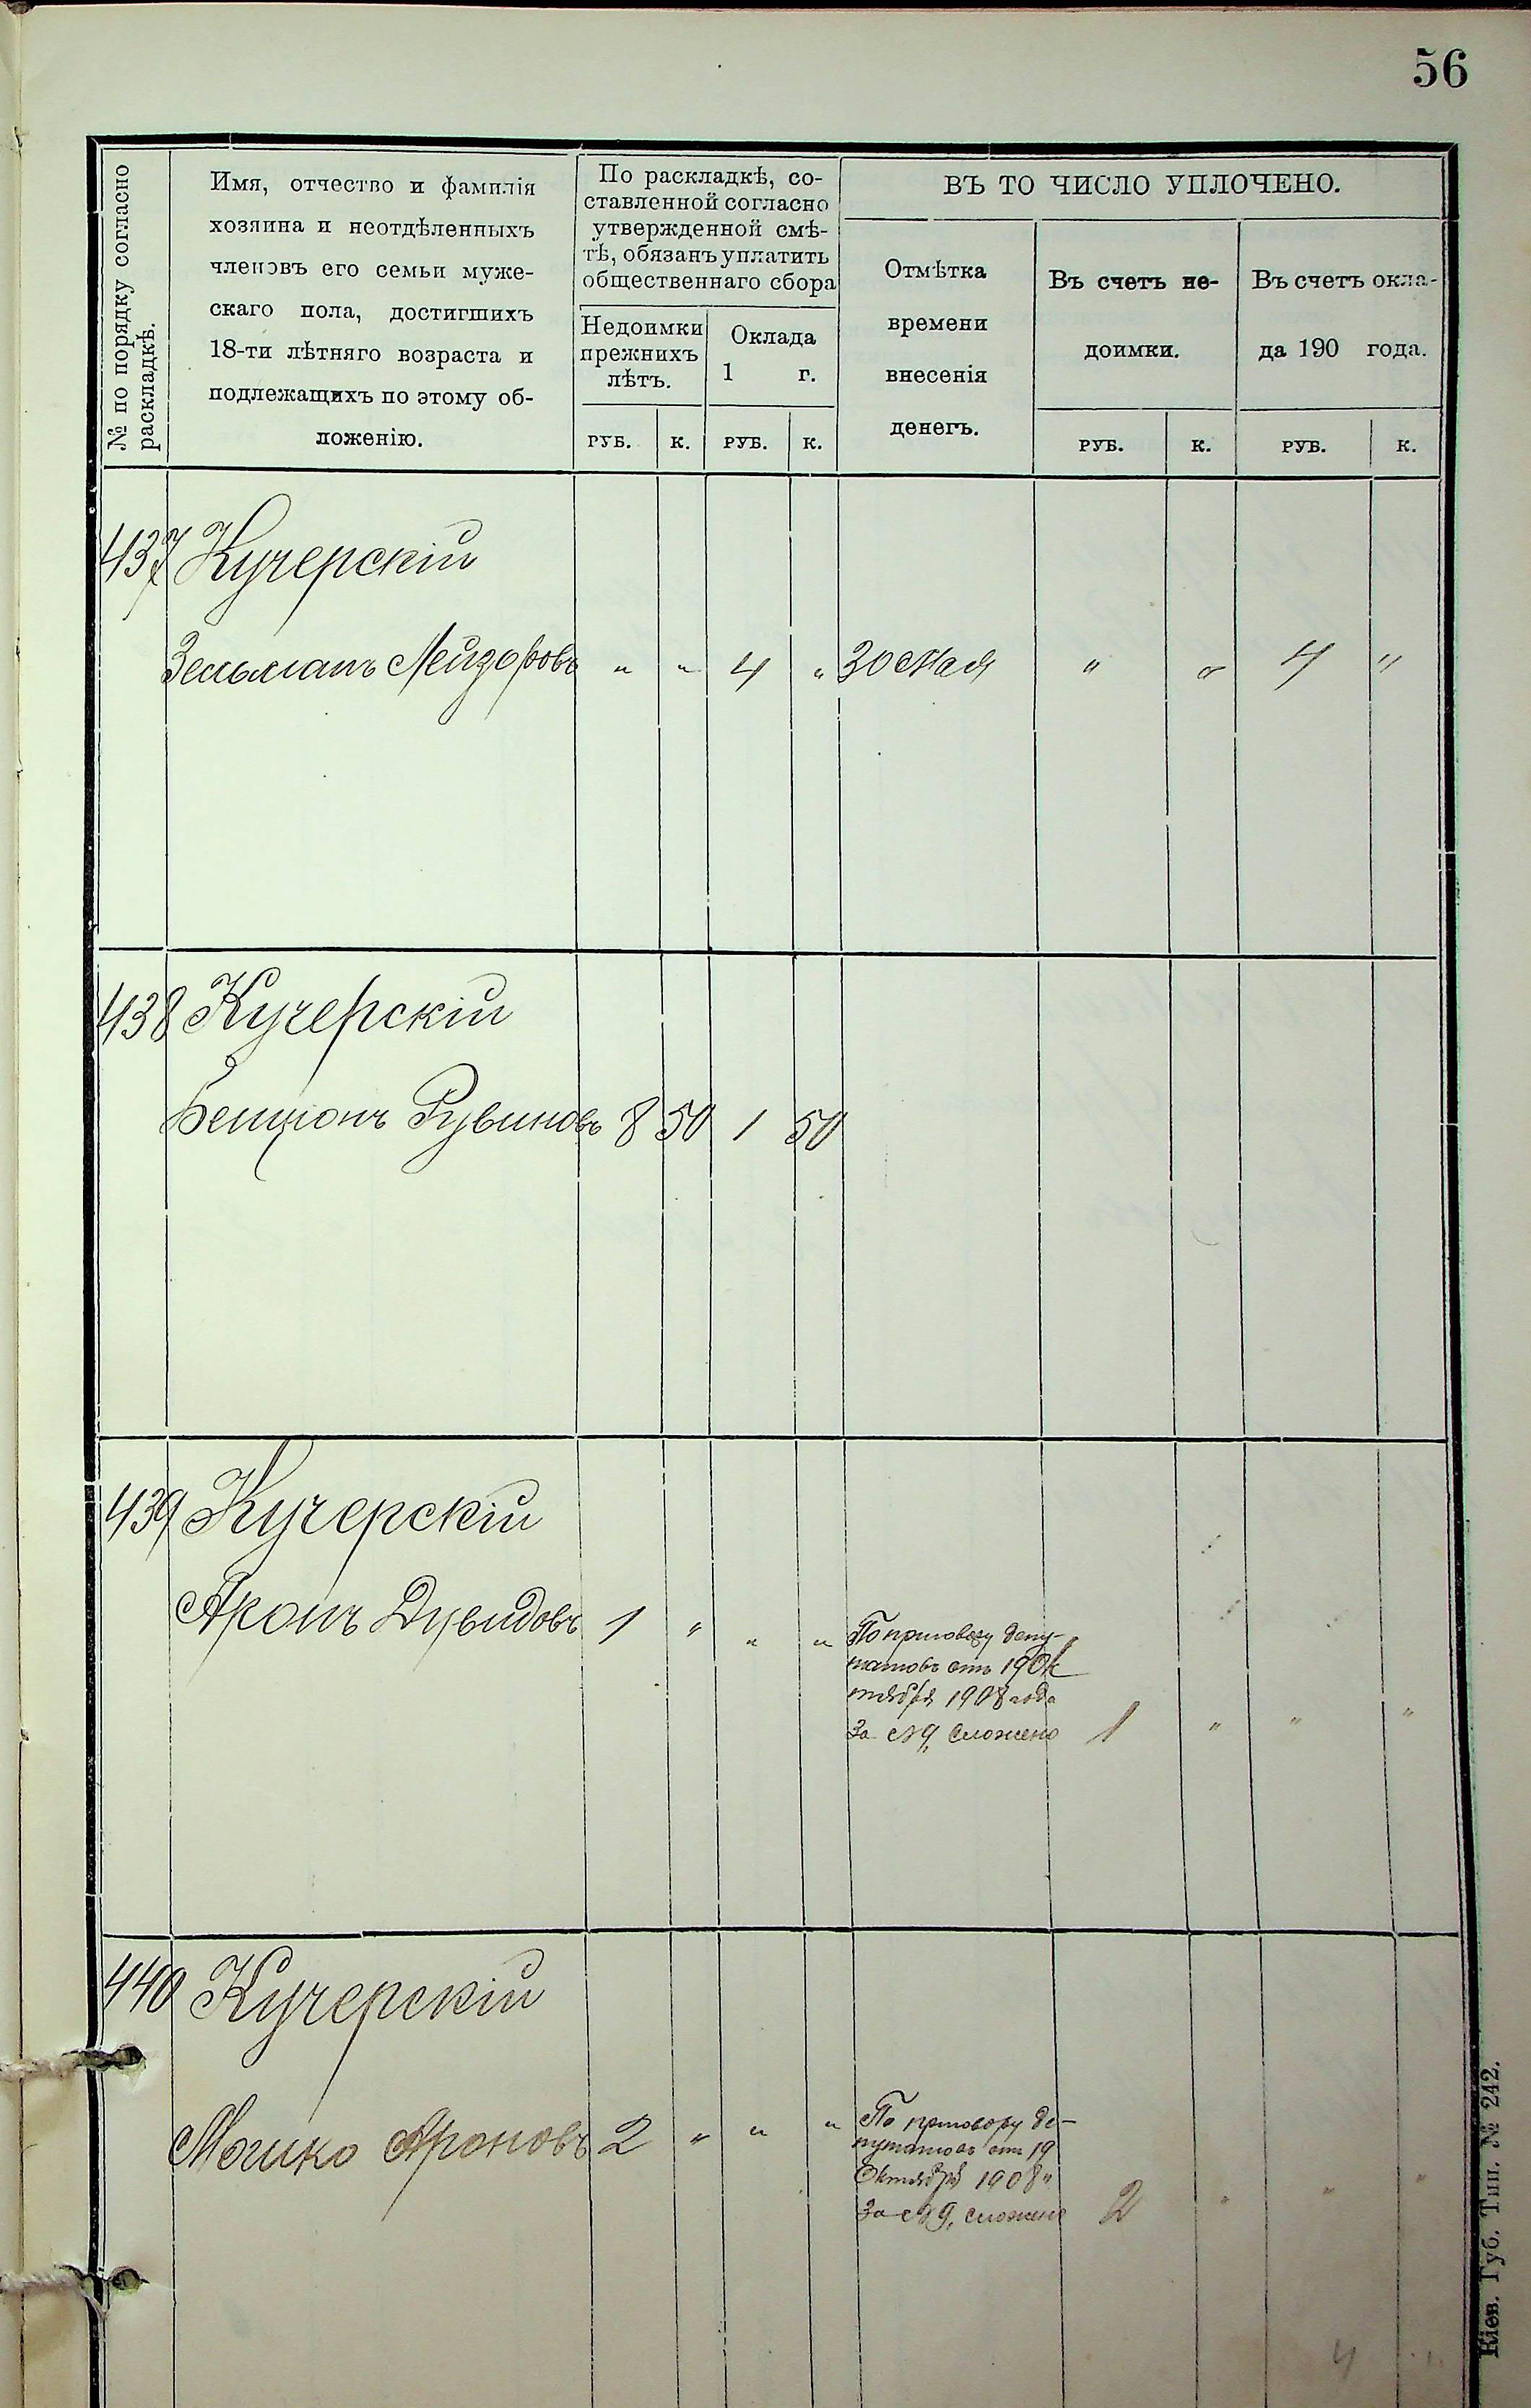 56
№ по порядку согласно
раскладкѣ.
Имя, отчество и фамилія
хозяина и неотдѣленныхъ
членовъ его семьи муже-
скаго пола, достигшихъ
18-ти лѣтняго возраста и
подлежащихъ по этому об-
ложенію.
По раскладкѣ, со-
ставленной согласно
утвержденной смѣ-
тѣ, обязанъ уплатить
общественнаго сбора
Недоимки
прежнихъ
лѣтъ.
Оклада
1 г.
РУБ. К. РУБ. К.
ВЪ ТО ЧИСЛО УПЛОЧЕНО.
Отмѣтка
времени
внесенія
денегъ.
Въ счетъ не-
доимки.
Въ счетъ окла-
да 190 года.
РУБ. К. РУБ. К.
437 Кучерскій
Зельманъ Лейзоровъ " " 4 " 30 Мая " " 4 "
438 Кучерскій
Бенціонъ Рувиновъ 8 50 1 50
439 Кучерскій
Аронъ Дувидовъ 1 " " "
По приговору депу-
татовъ отъ 19 Ок
тября 1908 года
За № 9, сложено 1 " " "
440 Кучерскій
Мошко Ароновъ 2 " " "
По приговору де-
путатовъ отъ 19
Октября 1908 "
За № 9, сложено 2 " " "
4
Кіев. Губ. Тип. № 242.